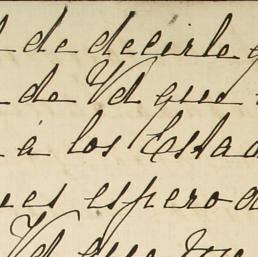 de decirle
de Vd que
á los Estad
es espero
Vd que